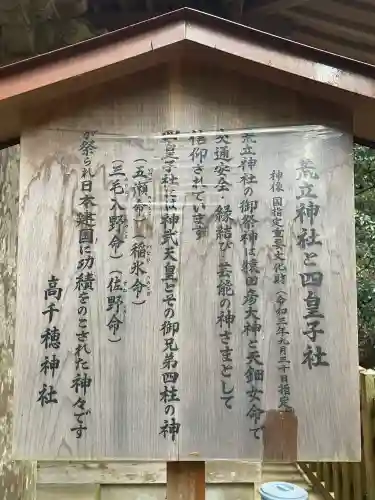 荒立神社と四皇子社
神像 国指定重要文化財(令和三年九月三十日指定)
荒立神社の御祭神は猿田彦大神と天鈿女命で
交通安全・縁結び・芸能の神さまとして
信仰されています
四皇子社には神武天皇とその御兄弟四柱の神
(五瀬命)(稲氷命)
(三毛入野命)(佐野命)
が祭られ日本建国に功績をのこされた神々です
高千穂神社